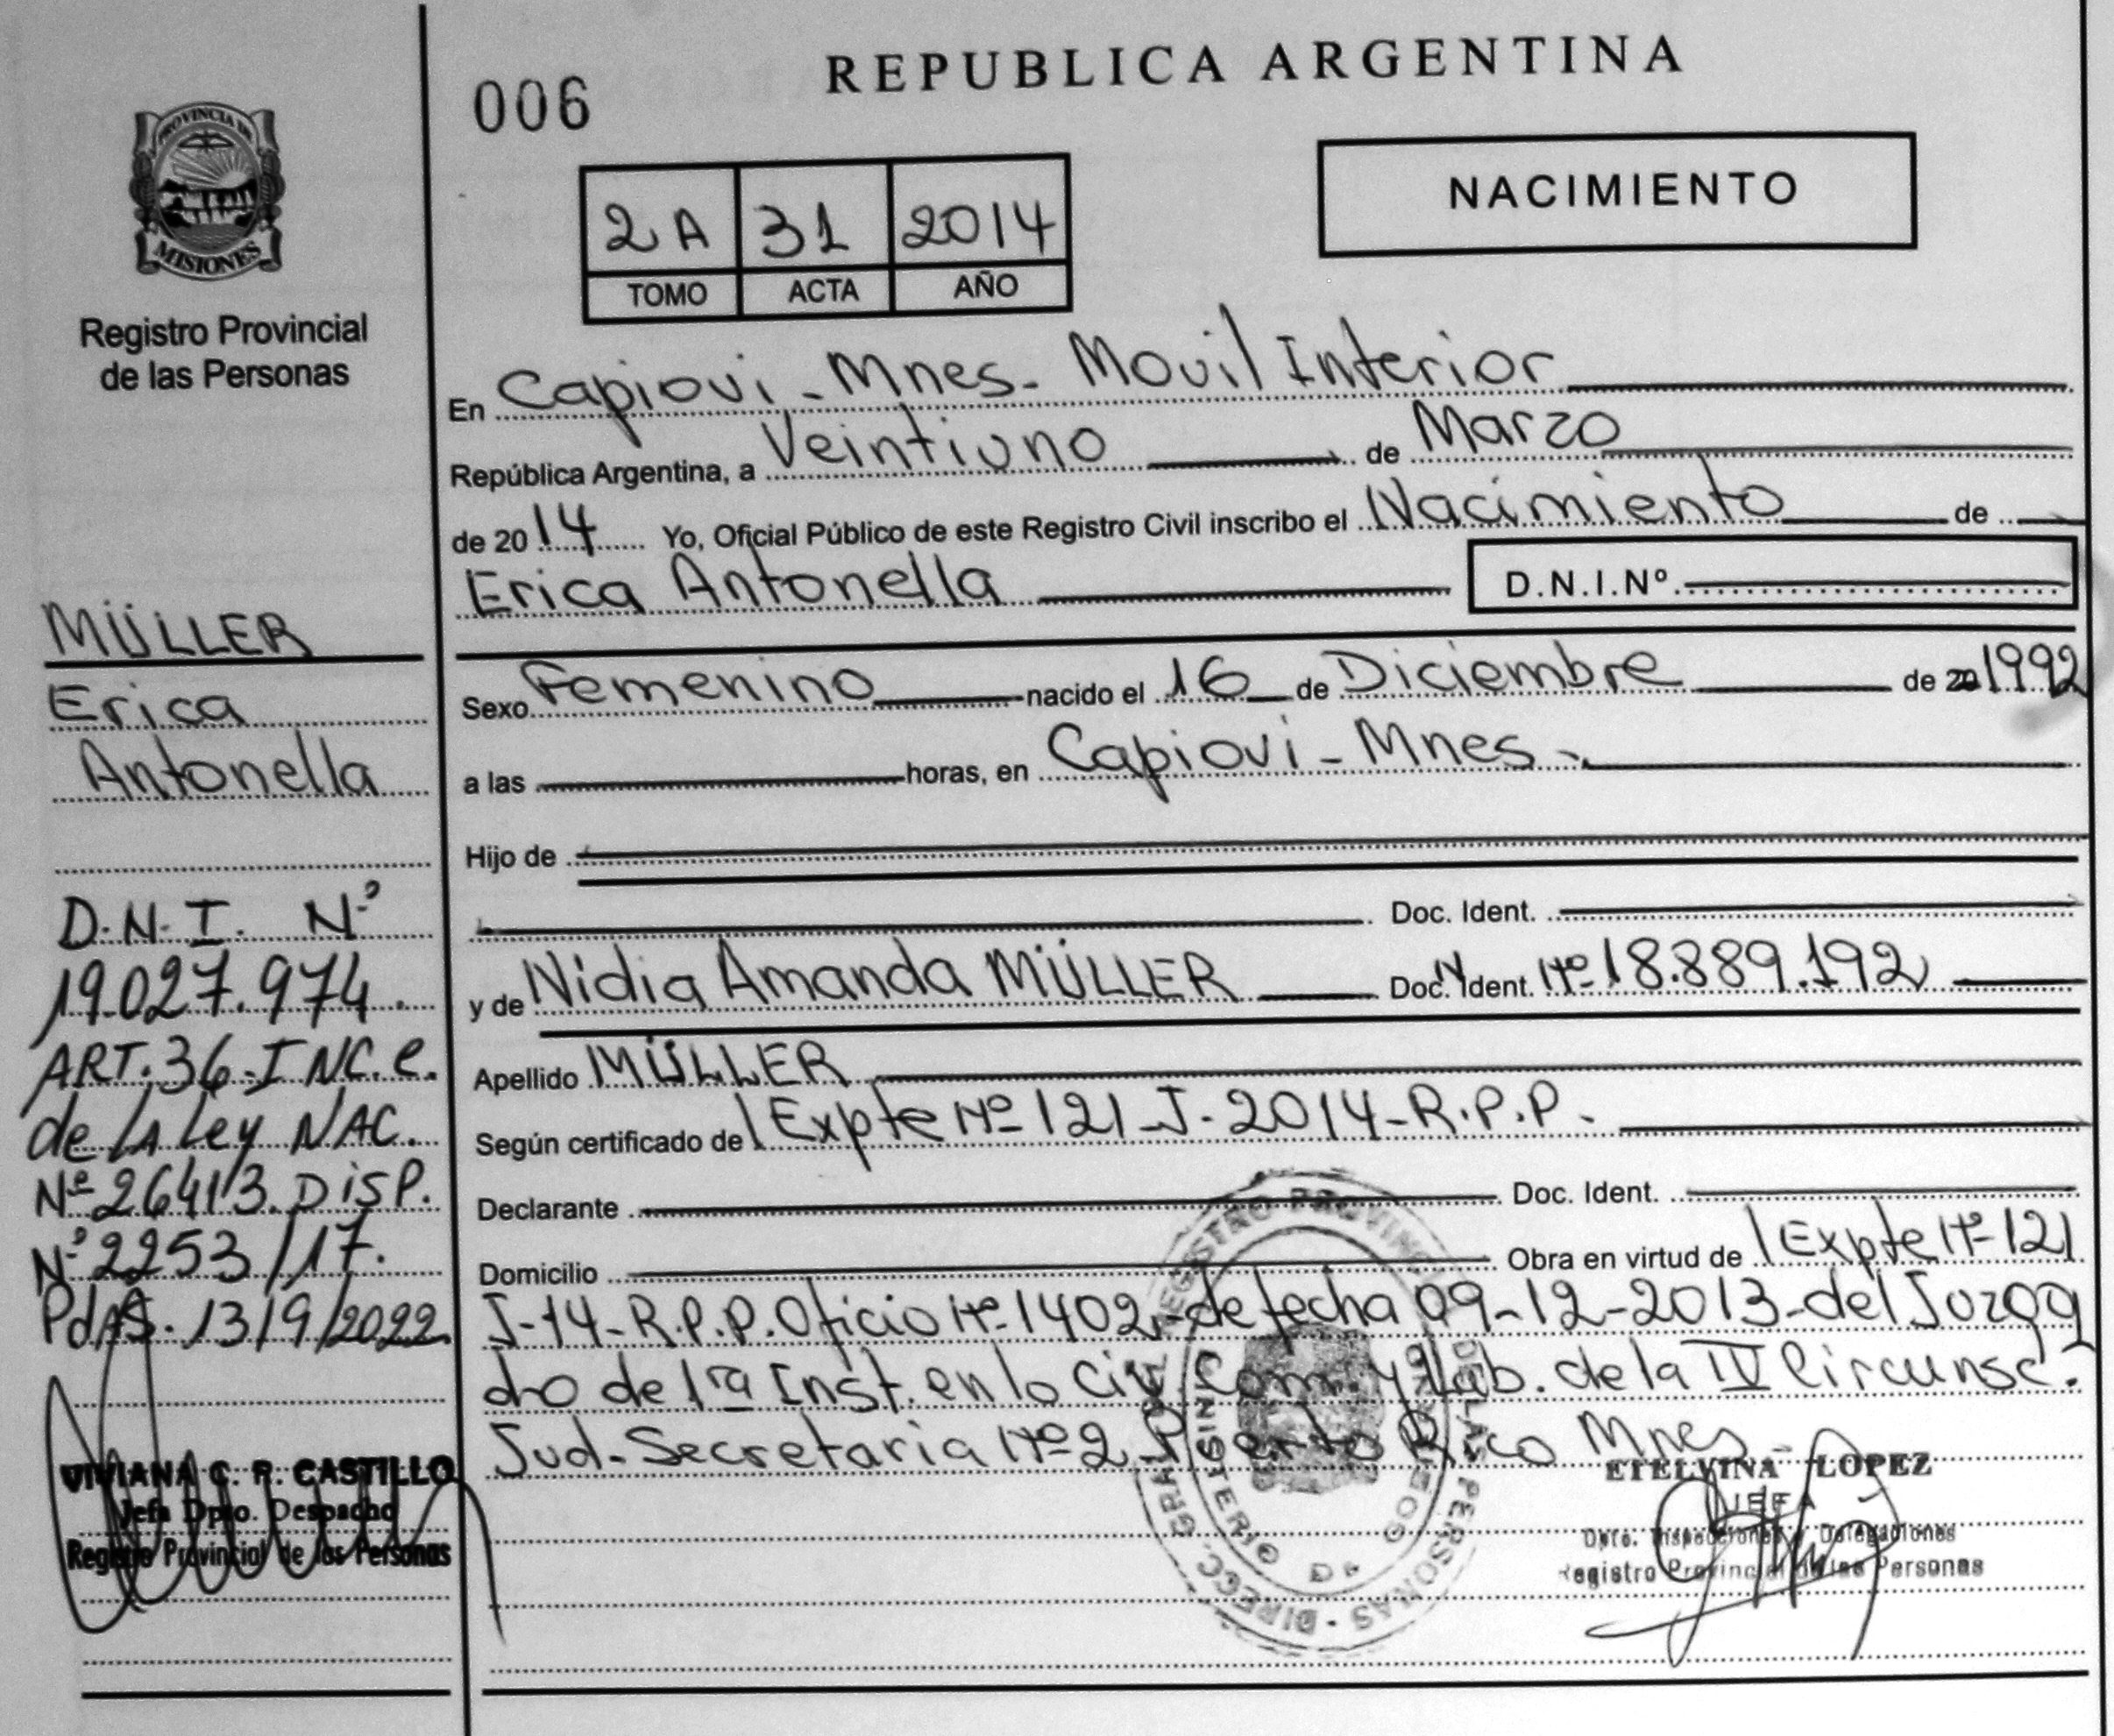 REPUBLICA ARGENTINA
006
NACIMIENTO
2A 31 2014
TOMO ACTA AÑO
PROVINCIA DE
MISIONES
Registro Provincial
de las Personas
En Capiovi - Mnes - Movil Interior
República Argentina, a Veintiuno de Marzo
de 2014 Yo, Oficial Público de este Registro Civil inscribo el Nacimiento de
Erica Antonella D.N.I.Nº
Sexo Femenino nacido el 16 de Diciembre de 20 1992
a las horas, en Capiovi - Mnes -
Hijo de
Doc. Ident.
y de Nidia Amanda MÜLLER Doc. Ident. Nº 18.889.192
Apellido MÜLLER
Según certificado de Expte Nº 121-J-2014-R.P.P.
Declarante Doc. Ident.
Domicilio Obra en virtud de Expte Nº 121
J-14-R.P.P. Oficio Nº 1402 - de fecha 09-12-2013 - del Juzga
do de 1ra Inst. en lo Civ. Com. y Lab. de la IV Circunsc.
Jud - Secretaria Nº 2 Puerto Rico Mnes -
ETELVINA LOPEZ
JEFA
Dpto. Inspecciones y Delegaciones
Registro Provincial de las Personas
MÜLLER
Erica
Antonella
D.N.I. Nº
19.027.974.
ART. 36. INC. e.
de LA Ley NAC.
Nº 26413. DISP.
Nº 2253/17.
PdAS. 13/9/2022
VIVIANA C. R. CASTILLO
Jefa Dpto. Despacho
Registro Provincial de las Personas